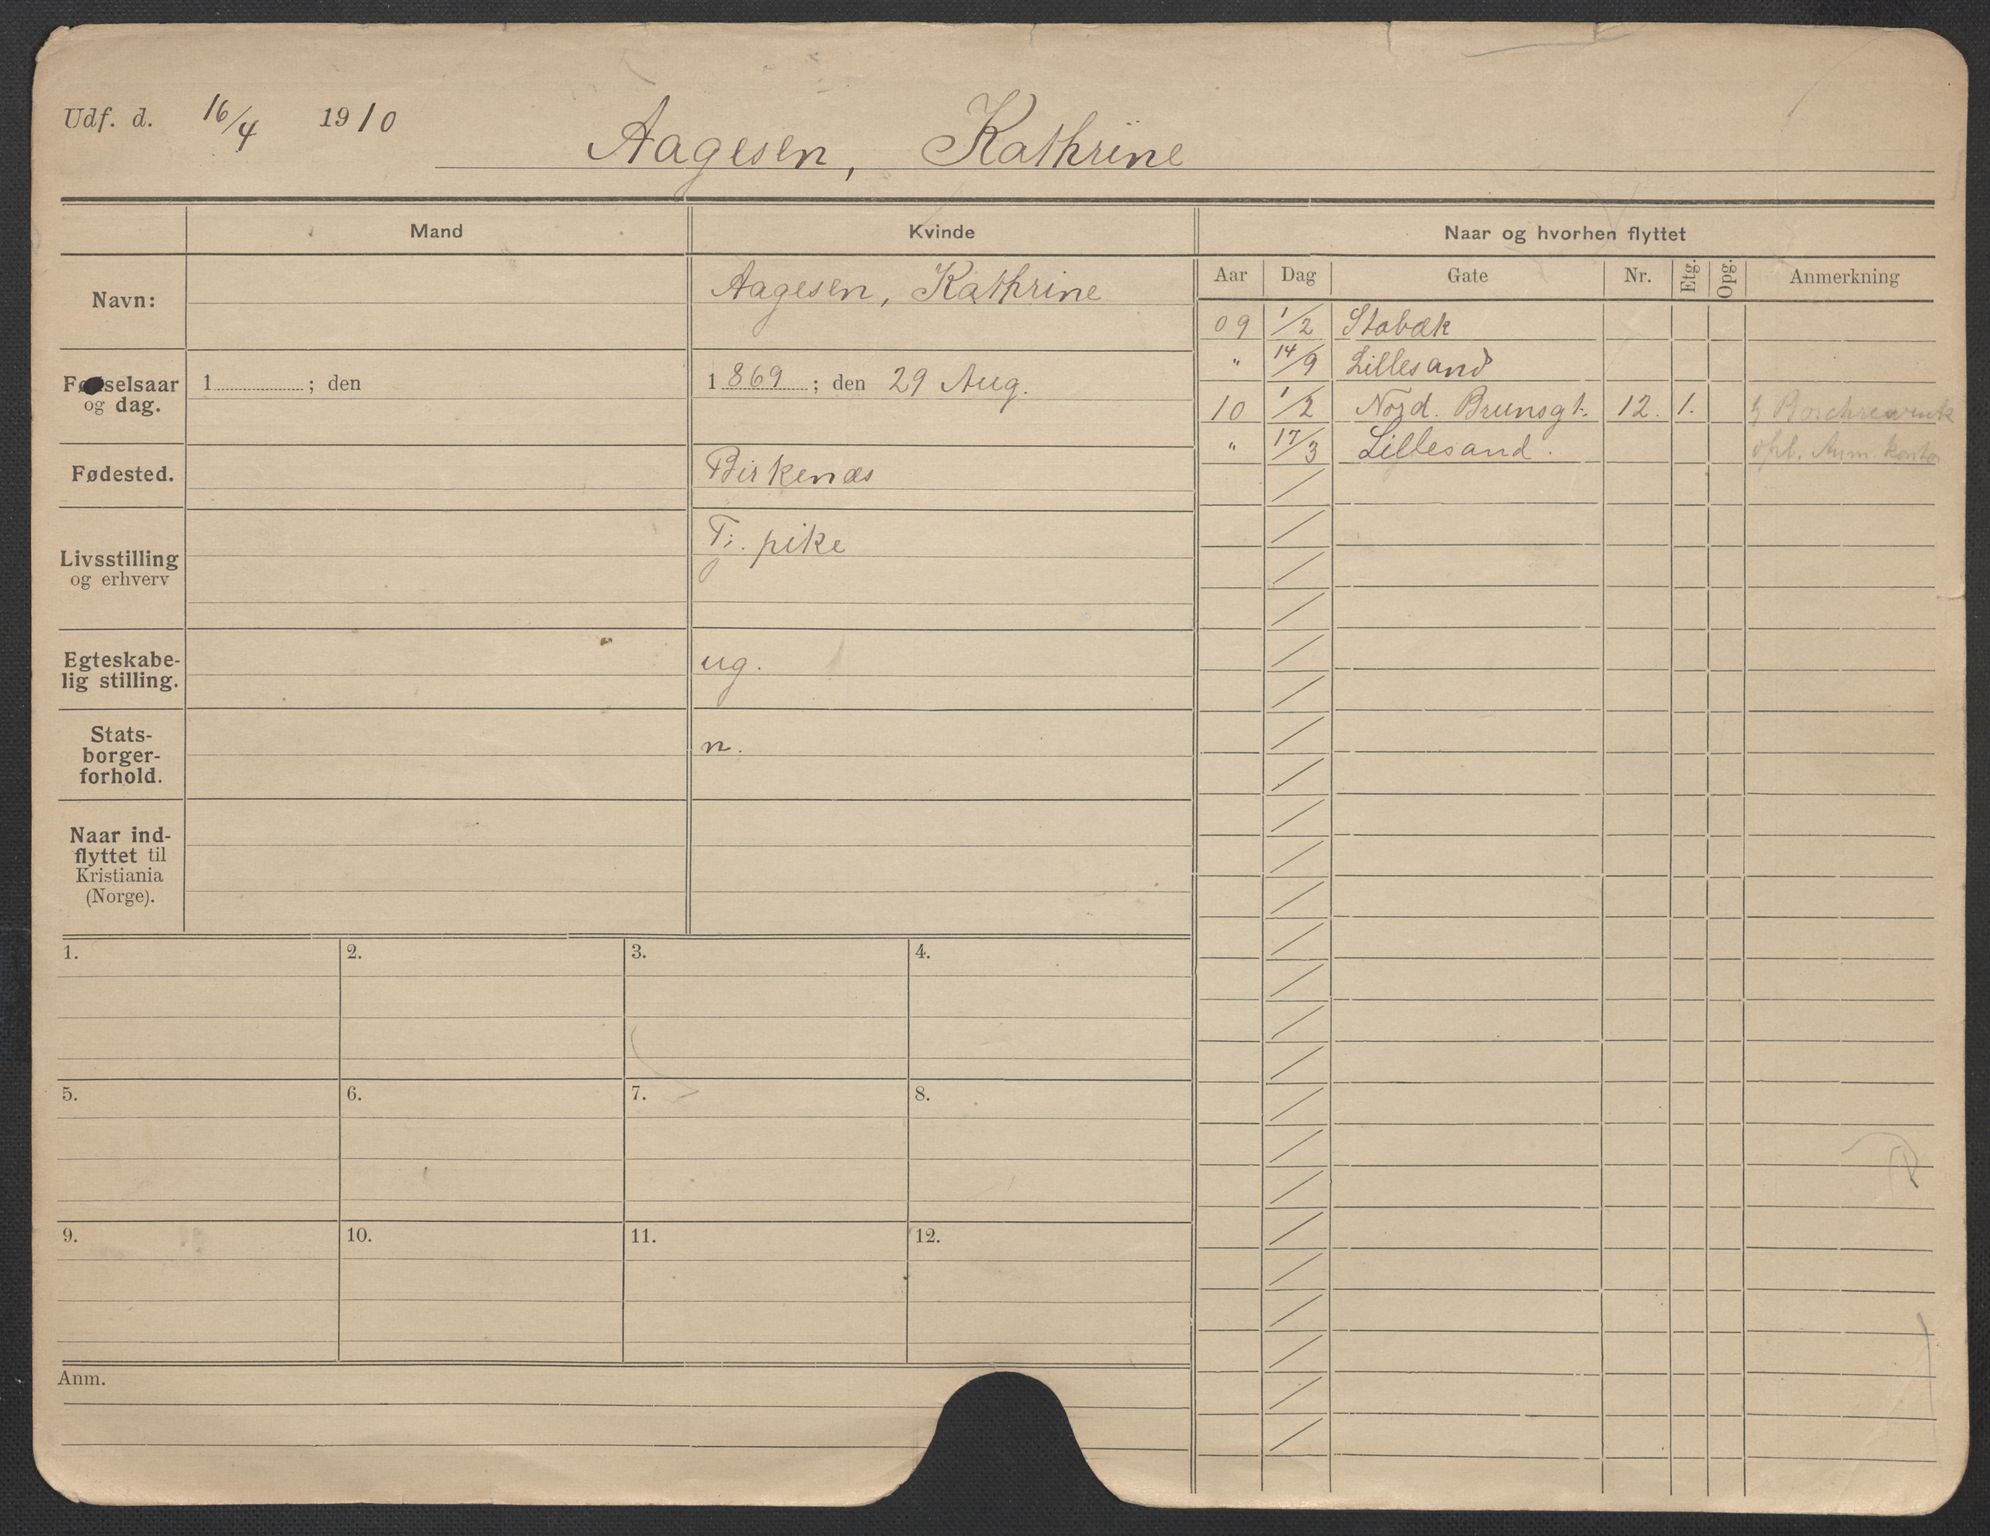 Udf. d. 16/4 1910
Aagesen, Kathrine
Mand Kvinde Naar og hvorhen flyttet
Navn: Aagesen, Kathrine
Fødselsaar og dag. 1 ; den 1869 ; den 29 Aug.
Fødested. Birkenæs
Livsstilling og erhverv Tj. pike
Egteskabe-
lig stilling. ug.
Stats-
borger-
forhold. n.
Naar ind-
flyttet til
Kristiania
(Norge).
Aar Dag Gate Nr. Etg. Opg. Anmerkning
09 1/2 Stabæk
" 14/9 Lillesand
10 1/2 Nord. Brunsgt. 12. 1.
" 17/3 Lillesand. opl. Anm. kontor
1. 2. 3. 4.
5. 6. 7. 8.
9. 10. 11. 12.
Anm.